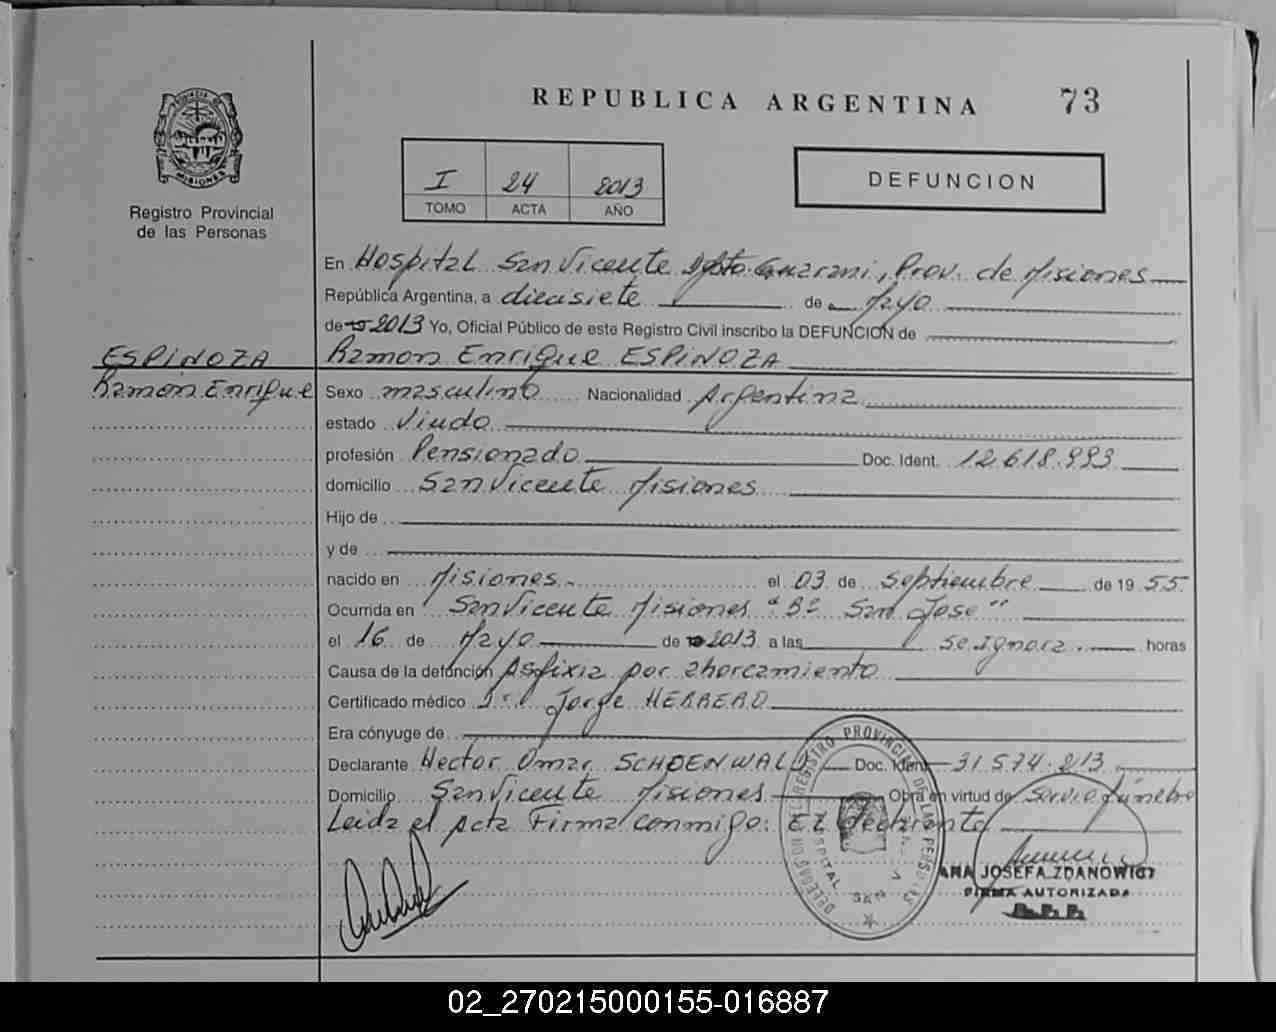 REPUBLICA ARGENTINA 73
PROVINCIA DE
MISIONES
Registro Provincial
de las Personas
I 24 2013
TOMO ACTA AÑO
DEFUNCION
En Hospital San Vicente Dpto. Guarani, Prov. de Misiones
República Argentina, a diecisiete de Mayo
de 2013 Yo, Oficial Público de este Registro Civil inscribo la DEFUNCION de
ESPINOZA Ramon Enrique ESPINOZA
Ramon Enrique Sexo masculino Nacionalidad Argentina
estado Viudo
profesión Pensionado Doc. Ident. 12.618.993
domicilio San Vicente Misiones
Hijo de
y de
nacido en Misiones el 03 de Septiembre de 19 55
Ocurrida en San Vicente Misiones "B° San Jose"
el 16 de Mayo de 2013 a las se ignora horas
Causa de la defunción Asfixia por ahorcamiento
Certificado médico Jorge HERRERO
Era cónyuge de
Declarante Hector Omar SCHOENWALD Doc. Ident 31.574.213
Domicilio San Vicente Misiones Obra en virtud de Servio fúnebre
Leida el Acta Firma conmigo: El Declarante
DELEGACION DEL REGISTRO PROVINCIAL DE LAS PERSONAS
HOSPITAL SAN
ANA JOSEFA ZDANOWICZ
FIRMA AUTORIZADA
02_270215000155-016887